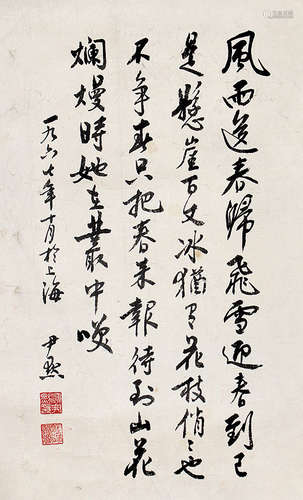 風雨送春歸飛雪迎春到已
是懸崖百丈冰猶有花枝俏〻也
不争春只把春来報待到山花
爛熳時她在叢中咲
一九六七年十月於上海
尹默